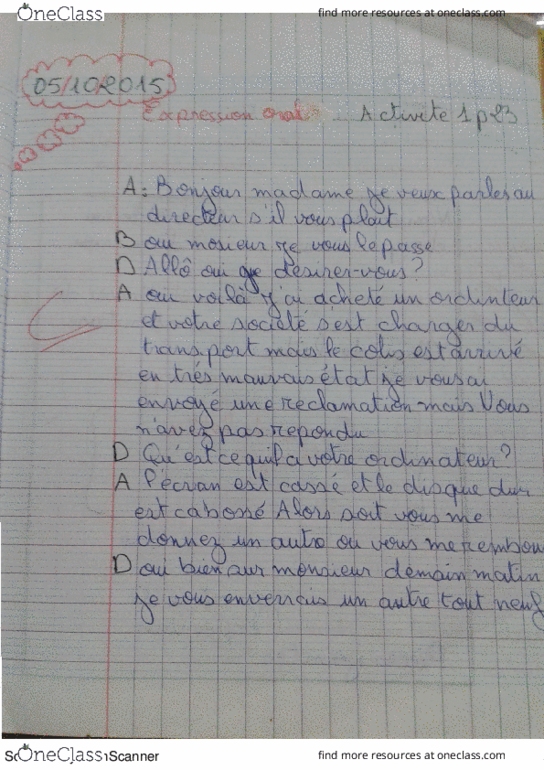 OneClass
find more resources at oneclass.com
05/10/2015
Expression oral Activite 1 p 23
A: Bonjour madame je veux parler au
directeur s'il vous plait
B oui mosieur je vous le passe
D Allô oui que désirez-vous?
A oui voilà j'ai acheté un ordinteur
et votre société s'est charger du
transport mais le colis est arrivé
en très mauvais état je vous ai
envoyé une reclamation mais Vous
n'avez pas repondu
D Qu'est ce qu'il a votre ordinateur?
A l'écran est cassé et le disque dur
est cabossé Alors soit vous me
donnez un autre ou vous me rembou
D oui bien sur monsieur demain matin
je vous enverrais un autre tout neuf
OneClass Scanner
find more resources at oneclass.com